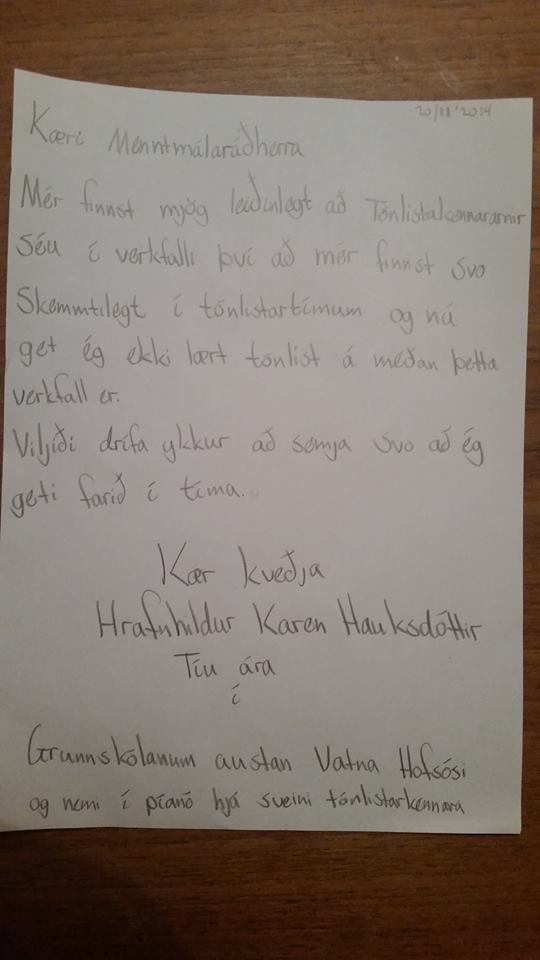 20/11 '2014
Kæri Menntmálaráðherra
Mér finnst mjög leiðinlegt að Tónlistakennararnir
séu í verkfalli því að mér finnst svo
Skemmtilegt í tónlistartímum og nú
get ég ekki lært tónlist á meðan þetta
verkfall er.
Viljiði drífa ykkur að semja svo að ég
geti farið í tíma.
Kær kveðja
Hrafnhildur Karen Hauksdóttir
Tíu ára
í
Grunnskólanum austan Vatna Hofsósi
og nemi í píanó hjá sveini tónlistarkennara